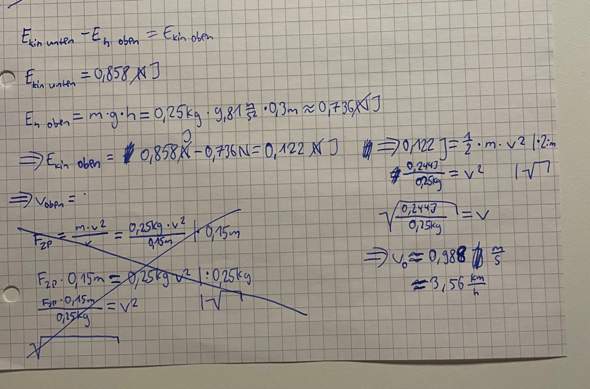 E kin unten - E h oben = E kin oben
E kin unten = 0,858 J
E h oben = m·g·h = 0,25kg · 9,81 m/s² · 0,3m ≈ 0,736 J
⇒ E kin oben = 0,858 J - 0,736N = 0,122 J
⇒ v oben =
F zp = m·v²/r = 0,25kg·v²/0,15m | · 0,15m
F zp · 0,15m = 0,25kg v² | : 0,25kg
F zp · 0,15m/0,25kg = v² | √
√
⇒ 0,122 J = 1/2 · m · v² | ·2:m
0,244J/0,25kg = v² | √
√(0,244J/0,25kg) = v
⇒ v₀ ≈ 0,988 m/s
≈ 3,56 km/h